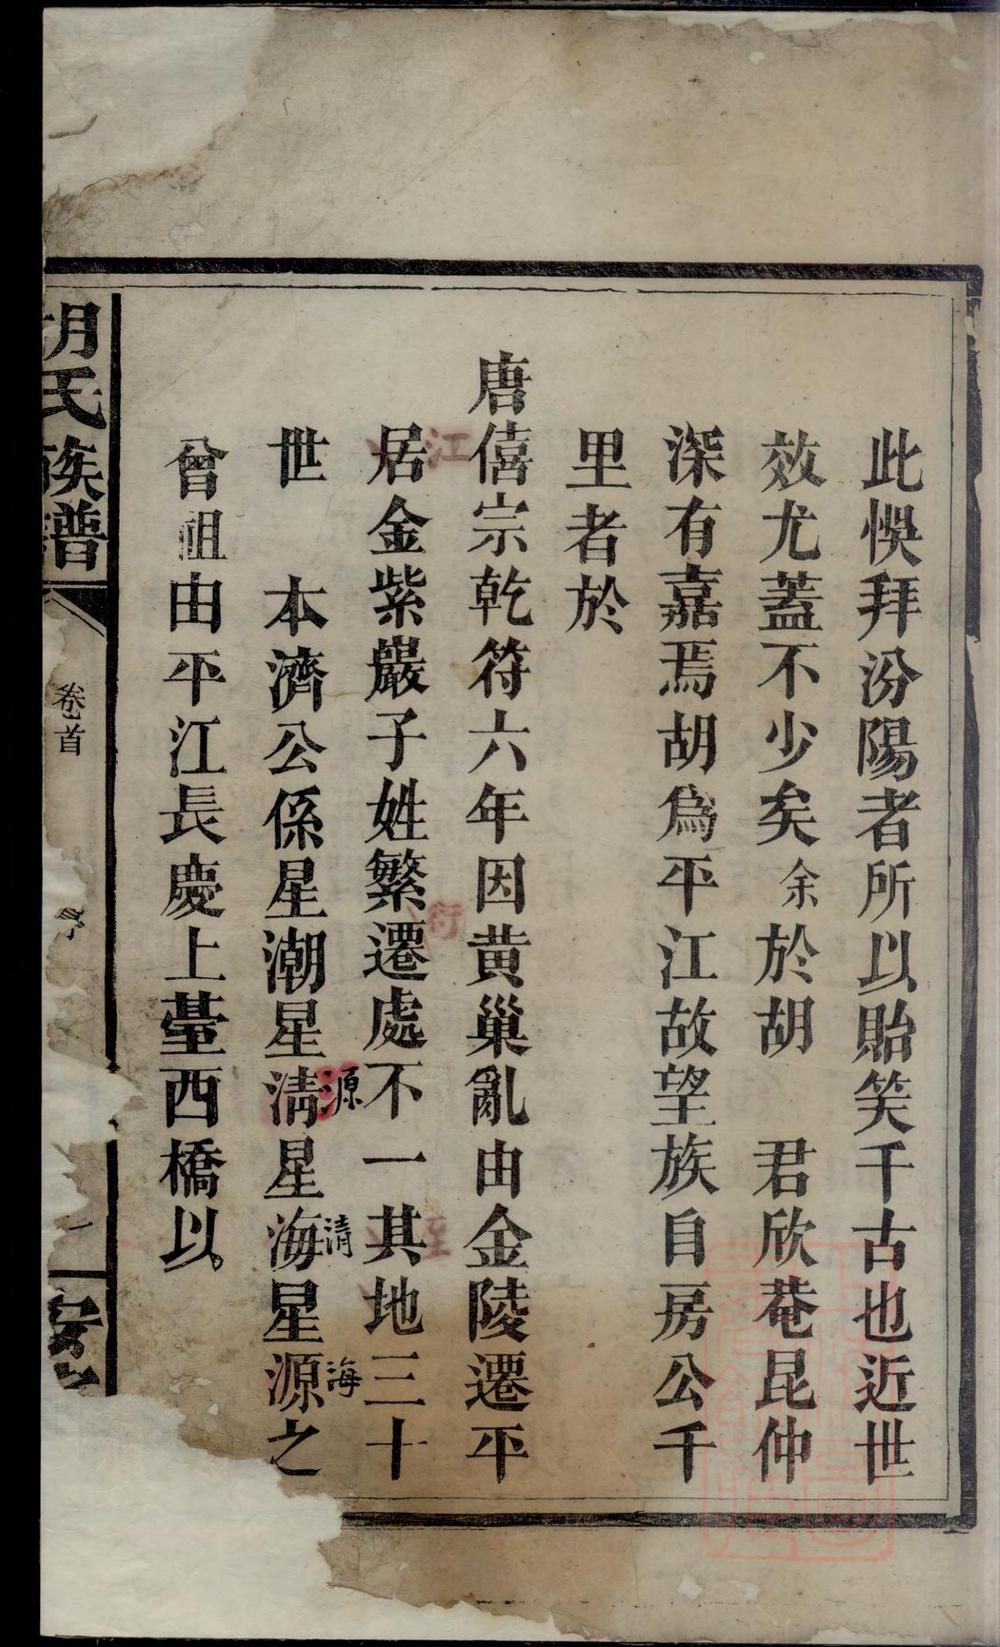 此悞拜汾陽者所以貽笑千古也近世
效尤蓋不少矣余於胡 君欣菴昆仲
深有嘉焉胡爲平江故望族自房公千
里者於
唐僖宗乾符六年因黃巢亂由金陵遷平
江
居金紫嚴子姓繁遷處不一其地三十
衍
源
清
海
世 本濟公係星潮星淸星海星源之
曾祖由平江長慶上臺西橋以
胡氏族譜
卷首
一